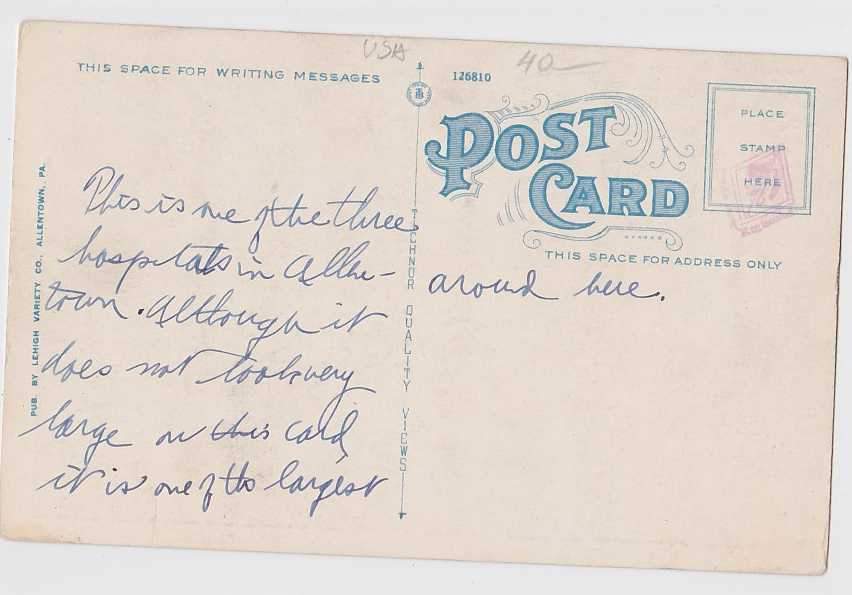 USA
40—
THIS SPACE FOR WRITING MESSAGES
126810
POST
CARD
PLACE
STAMP
HERE
THIS SPACE FOR ADDRESS ONLY
PUB. BY LEHIGH VARIETY CO., ALLENTOWN, PA.
TICHNOR QUALITY VIEWS
This is one of the three
hospitals in Allen-
town. Although it
does not look very
large on this card,
it is one of the largest
around here.